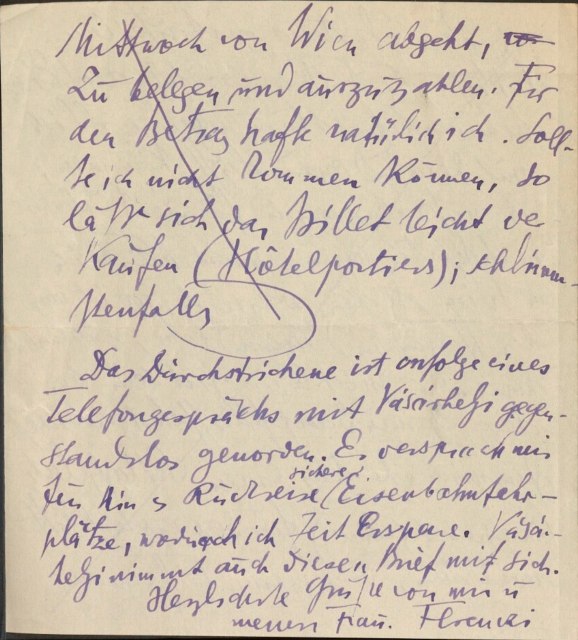 Mittwoch von Wien abgeht, vor
zu belegen und auszuzahlen. Für
den Betrag hafte natürlich ich. Soll-
te ich nicht kommen können, so
läßt sich das Billet leicht ver
kaufen (Hôtelportiers); schlimm-
stenfalls
Das Durchstrichene ist infolge eines
Telefongesprächs mit Vásárhelyi gegen-
standslos geworden. Er versprach mir
sichere
für Hin u Rückreise Eisenbahnfahr-
plätze, wodurch ich Zeit erspare. Vásár-
helyi nimmt auch diesen Brief mit sich.
Herzlichste Grüße von mir u
meiner Frau. Ferenczi